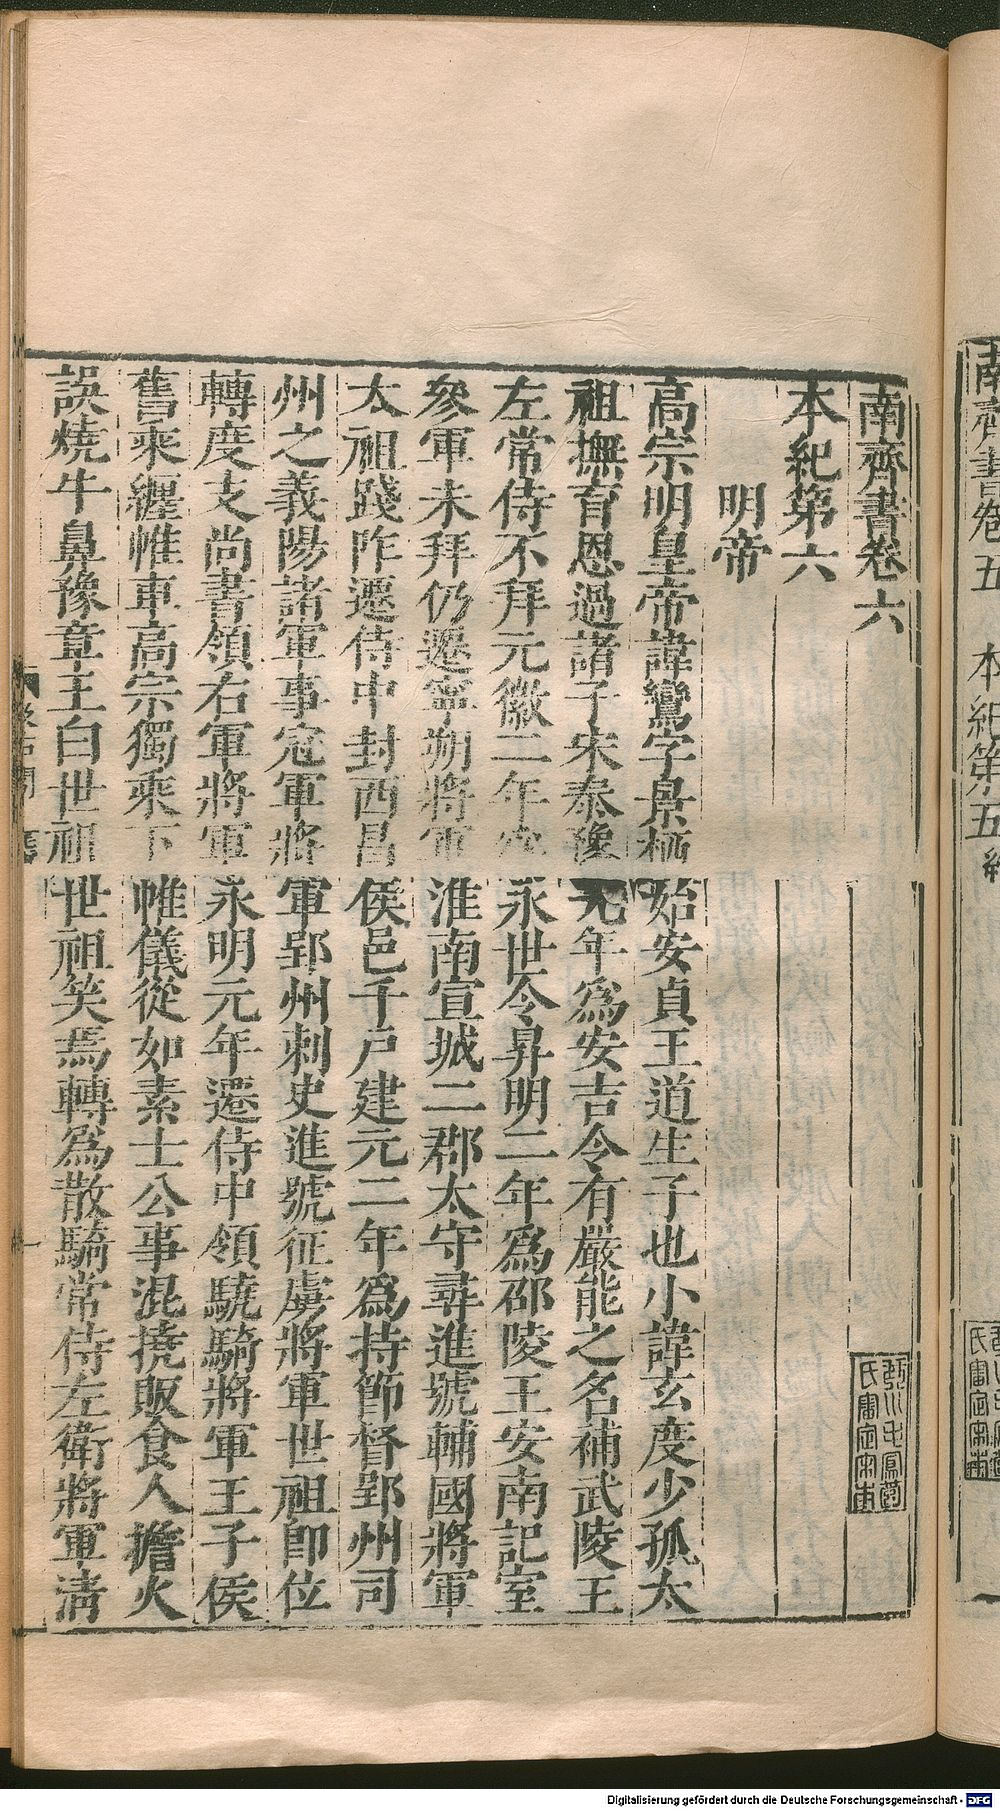 南齊書卷五　本紀第五
南齊書卷六
本紀第六
明帝
高宗明皇帝諱鸞字景栖始安貞王道生子也小諱玄度少孤太
祖撫育恩過諸子宋泰豫元年為安吉令有嚴能之名補武陵王
左常侍不拜元徽二年永世令昇明二年為邵陵王安南記室
參軍未拜仍遷寧朔將軍淮南宣城二郡太守尋進號輔國將軍
太祖踐阼遷侍中封西昌侯邑千戶建元二年為持節督郢州司
州之義陽諸軍事冠軍將軍郢州刺史進號征虜將軍世祖即位
轉度支尚書領右軍將軍永明元年遷侍中領驍騎將軍王子侯
舊乘纏帷車高宗獨乘下帷儀從如素士公事混撓販食人擔火
誤燒牛鼻豫章王白世祖世祖笑焉轉為散騎常侍左衛將軍清
Digitalisierung gefördert durch die Deutsche Forschungsgemeinschaft - DFG